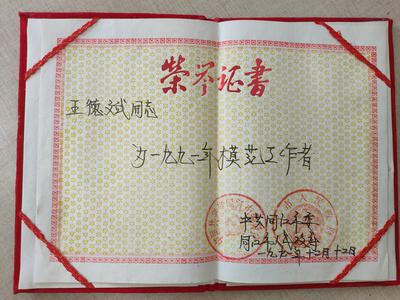 荣誉证书
王德斌同志
为一九九一年模范工作者
中共同江市委
同江市人民政府
一九九一年十二月十二日